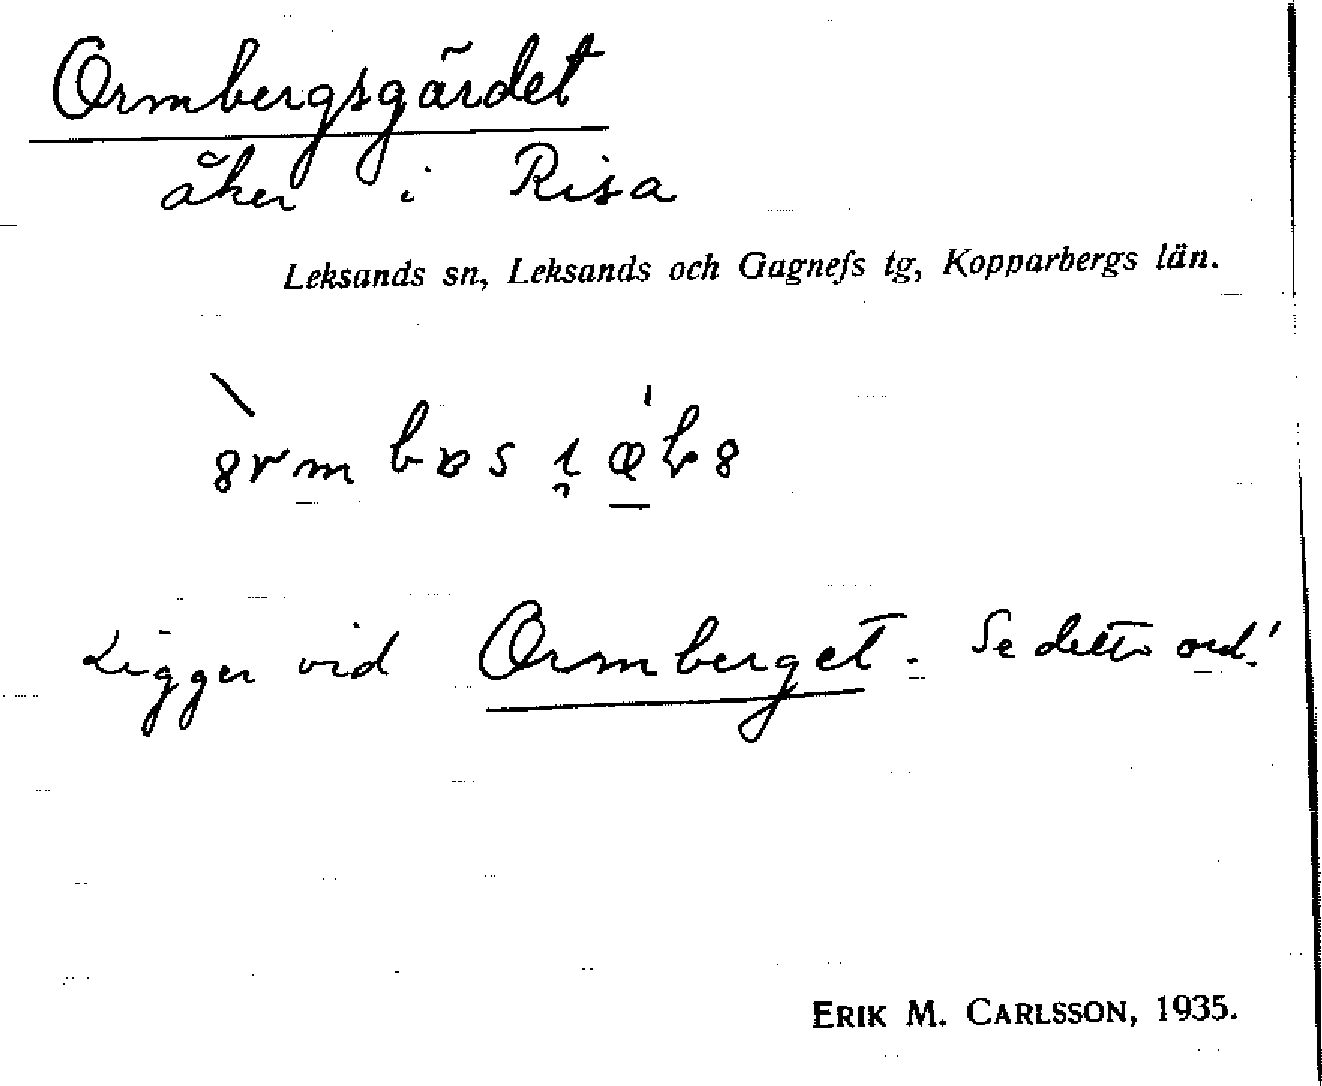 Ormbergsgärdet
åker i Risa
Leksands sn, Leksands och Gagnefs tg, Kopparbergs län.
Ligger vid Ormberget. Se detta ord!
ERIK M. CARLSSON, 1935.